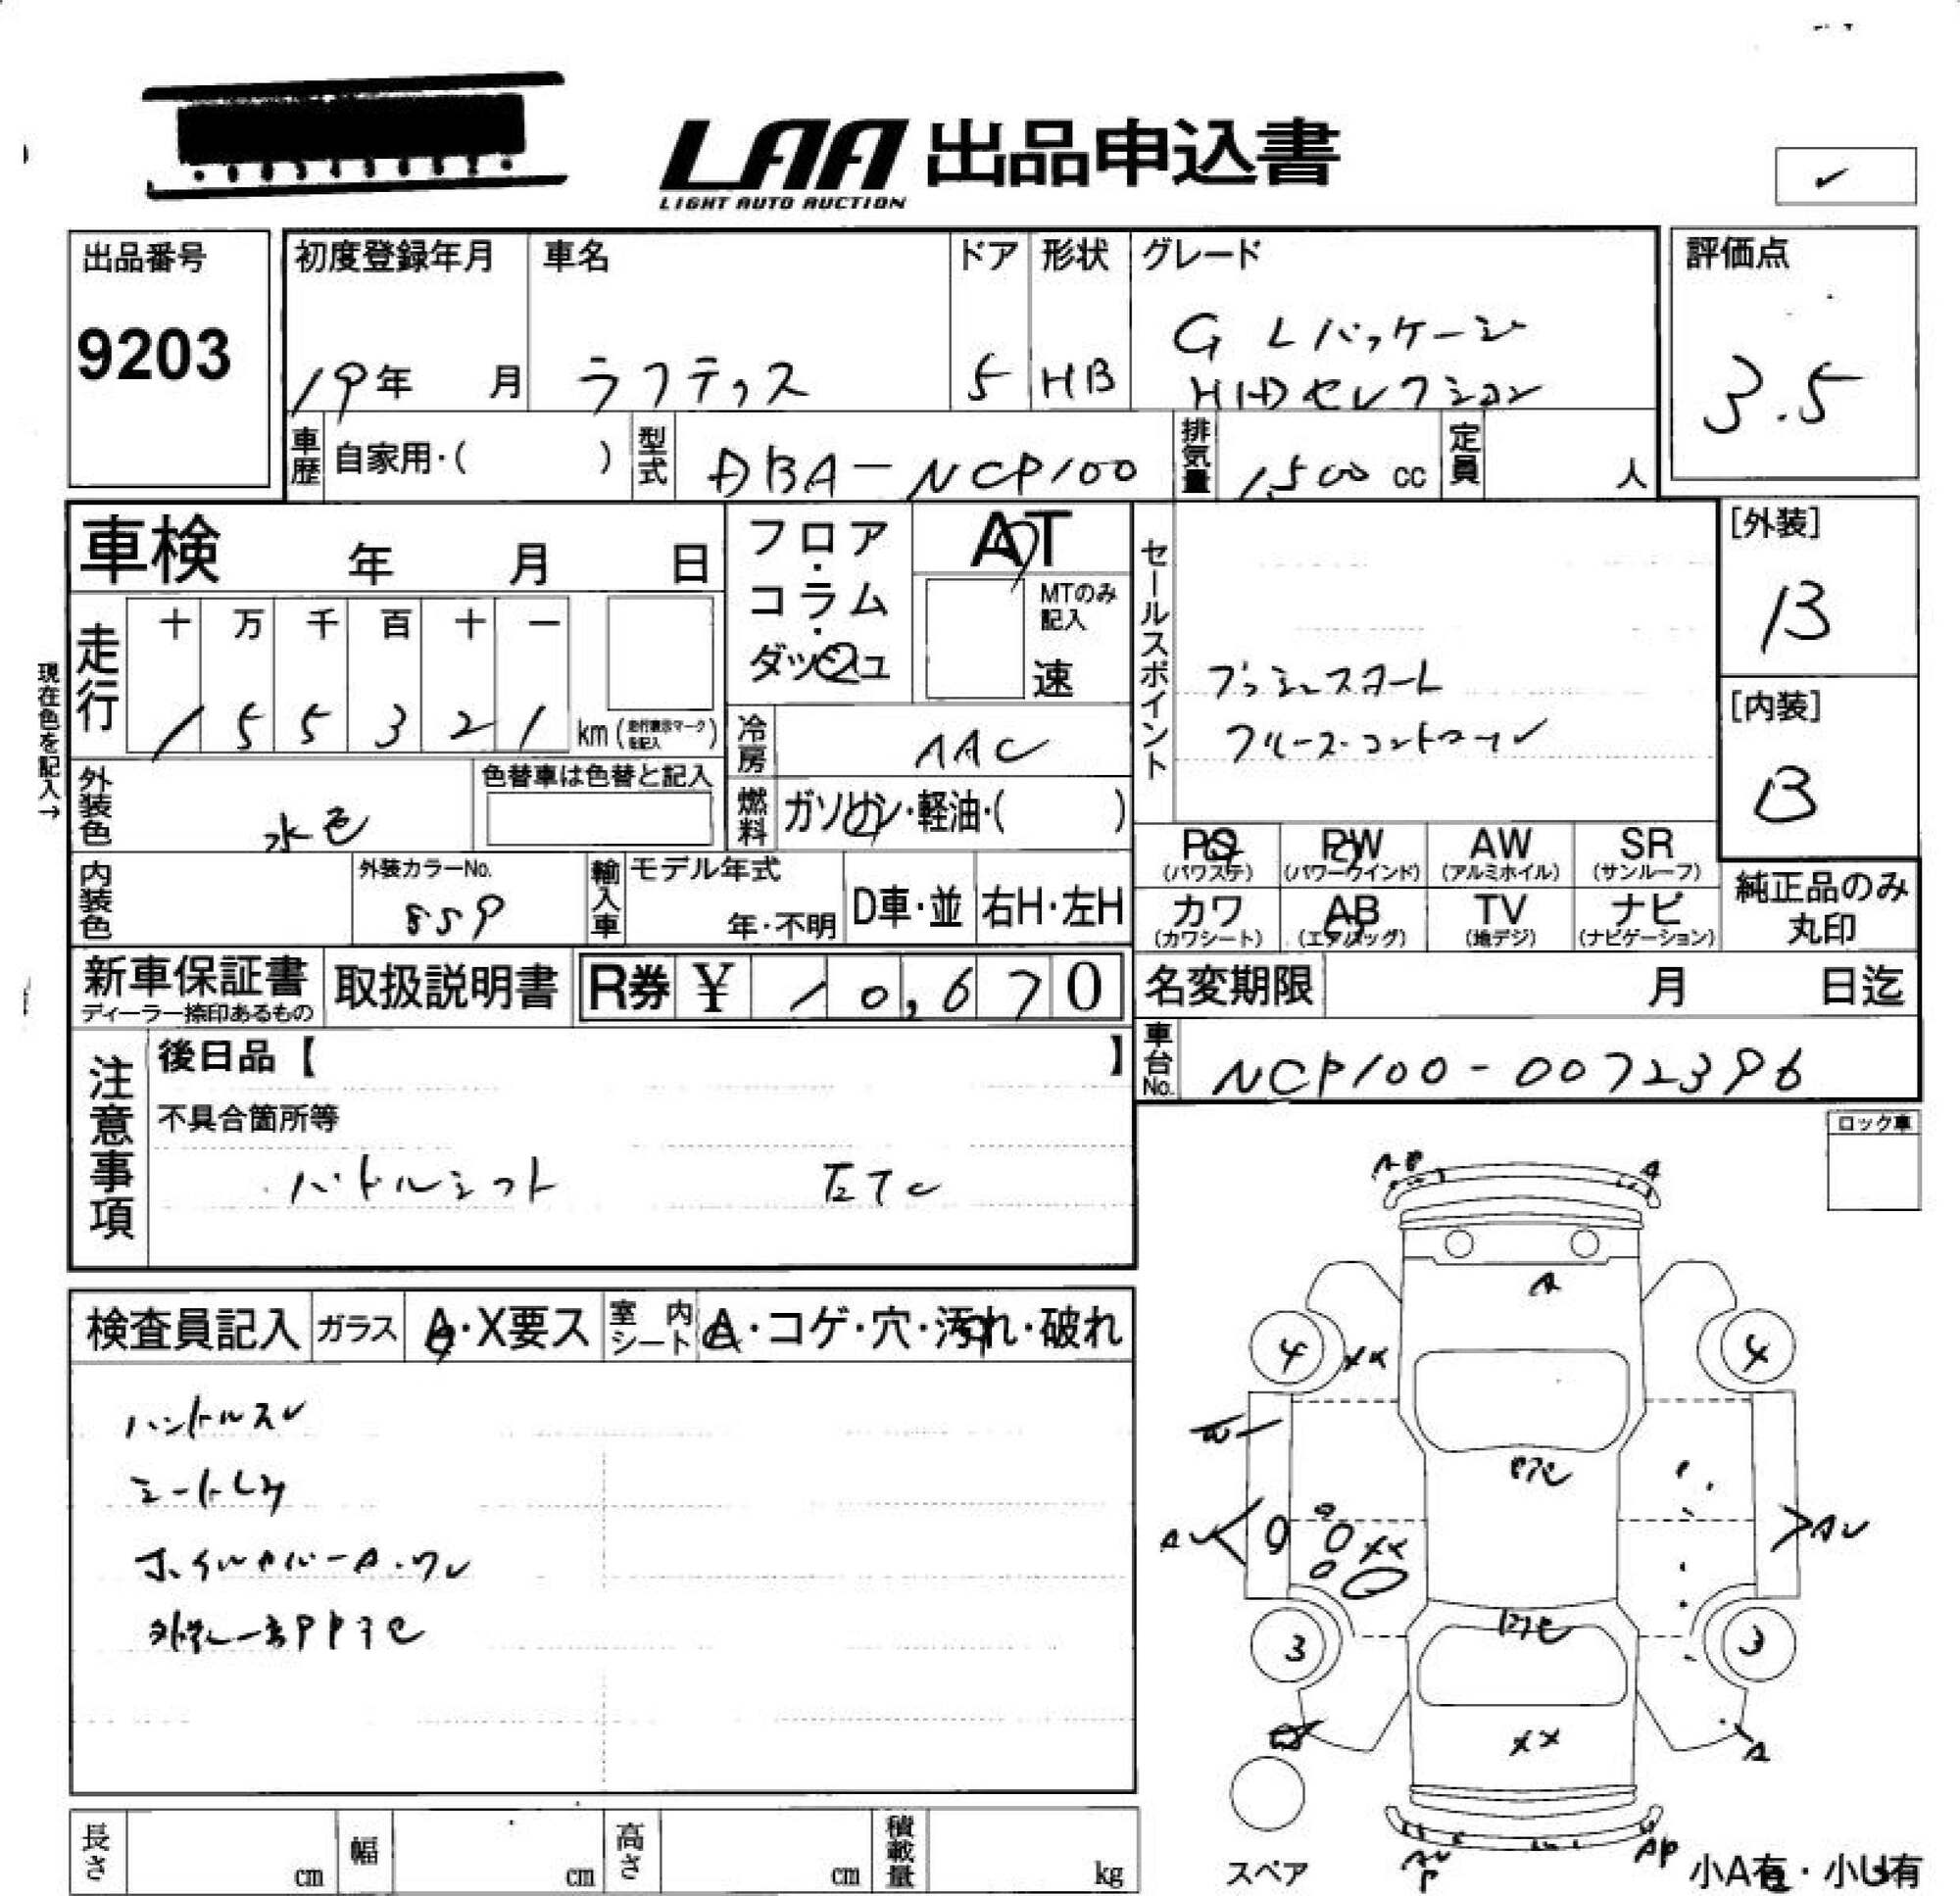 LAA 出品申込書
LIGHT AUTO AUCTION
出品番号
9203
初度登録年月
19年 月
車名
ラクティス
ドア
5
形状
HB
グレード
G Lパッケージ
HIDセレクション
評価点
3.5
車歴 自家用・( )
型式 DBA-NCP100
排気量 1,500 cc
定員 人
車検 年 月 日
フロア・コラム・ダッシュ
AT
MTのみ記入
速
セールスポイント
プッシュスタート
クルーズコントロール
[外装]
B
[内装]
B
現在色を記入→
走行
十 万 千 百 十 一
1 5 5 3 2 1 km (走行表示マークを記入)
冷房 AAC
外装色 水色
色替車は色替と記入
燃料 ガソリン・軽油・( )
PS (パワステ)
PW (パワーウインド)
AW (アルミホイル)
SR (サンルーフ)
カワ (カワシート)
AB (エアバッグ)
TV (地デジ)
ナビ (ナビゲーション)
純正品のみ丸印
内装色
外装カラーNo.
8S9
輸入車
モデル年式
年・不明
D車・並
右H・左H
新車保証書
ディーラー捺印あるもの
取扱説明書
R券 ¥ 10,670
名変期限 月 日迄
車台No. NCP100-0072396
注意事項
後日品【 】
不具合箇所等
パドルシフト ETC
ロック車
検査員記入
ガラス A・X要ス
室内シート A・コゲ・穴・汚れ・破れ
ハンドルスレ
シートしみ
ホイルカバーA・ワレ
外装一部PP予セ
A P
A
A
4
XX
4
AU
XX
AU
3
3
XX
A
AP
スペア
小A有・小U有
長さ cm
幅 cm
高さ cm
積載量 kg